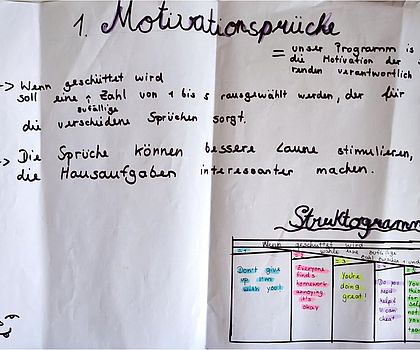 1. Motivationsprüche
= unser Programm is
die Motivation der
renden verantwortlich
-> Wenn geschüttet wird
soll eine ↑ Zahl von 1 bis 5 rausgewählt werden, der für
zufällige
die verschiedene Sprüchen sorgt.
-> Die Sprüche können bessere Laune stimulieren,
die Hausaufgaben interessanter machen.
Struktogramm
Wenn geschüttet wird
wähle eine zufällige
Zahl zwischen 1 und
Don't give
up I'm
with you!
Everyone
finds
homework
annoying
it's
okay
You're
doing
great!
Do you
need
help?
U can
cheat
You
this
for
self
not
you